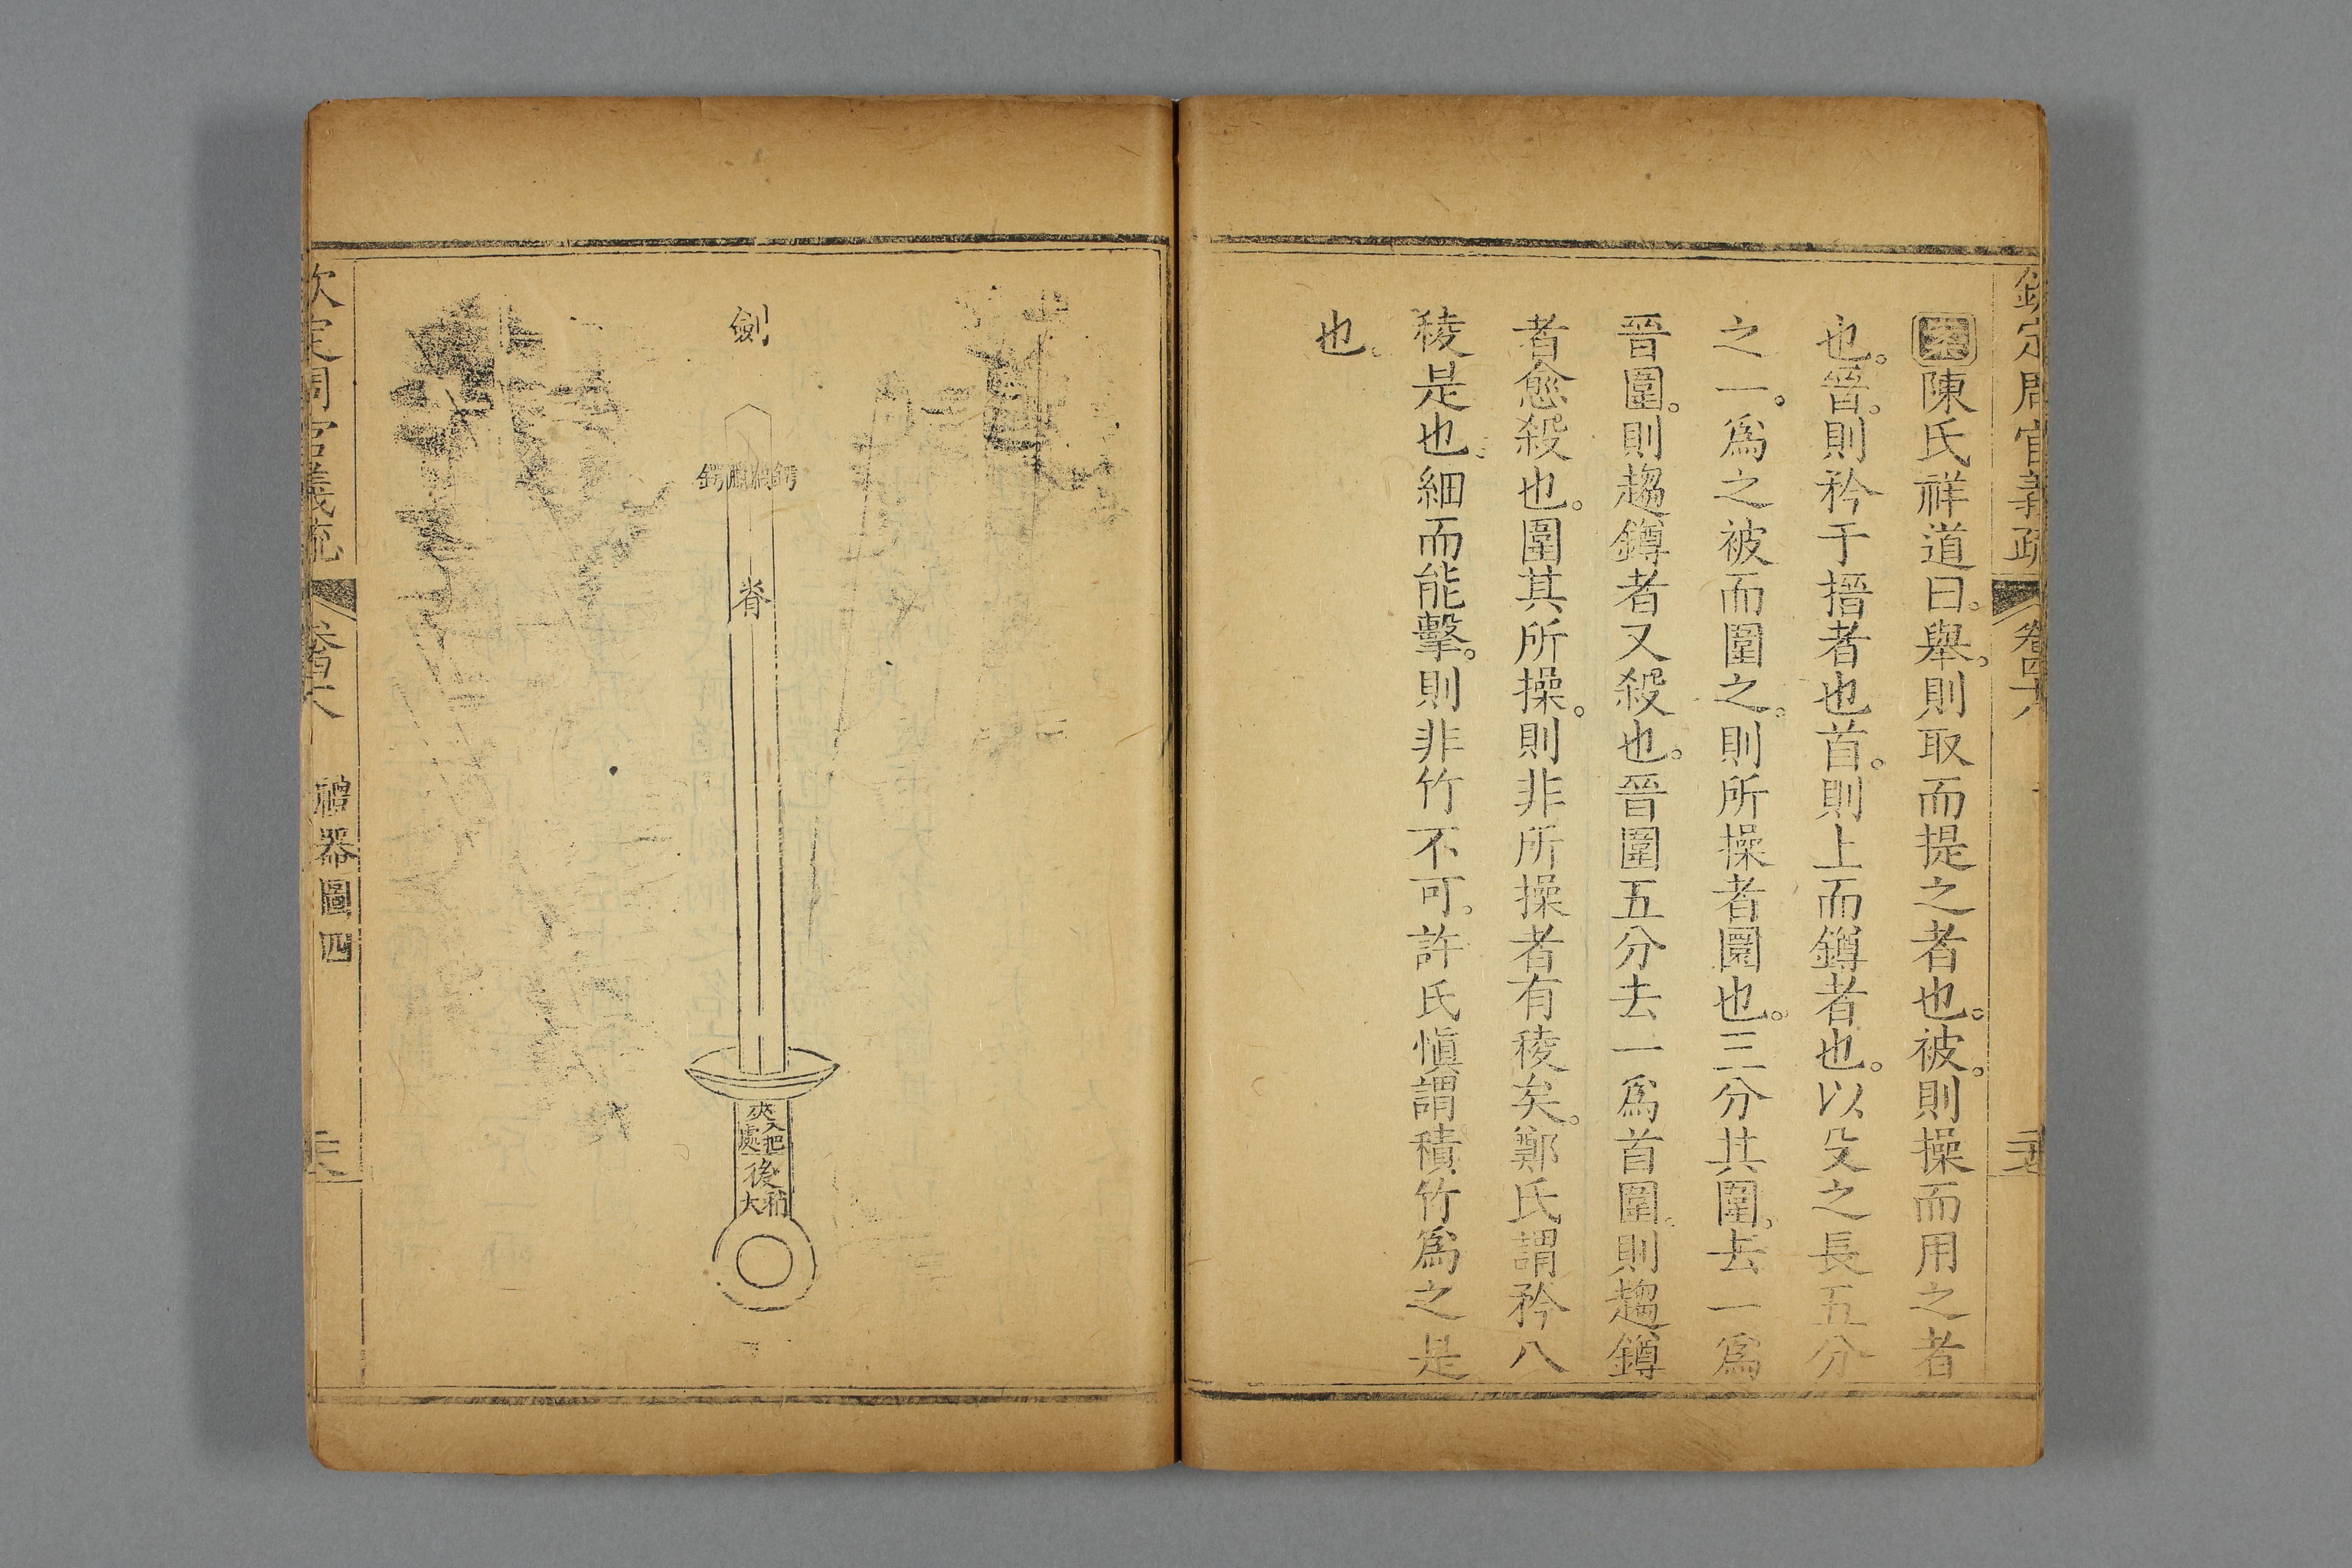 欽定周官義疏
陳氏祥道曰。舉。則取而提之者也。被。則操而用之者
也。晉。則矜于搢者也首。則上而鐏者也。以殳之長五分
之一。爲之被而圍之。則所操者圜也。三分其圍。去一爲
晉圍。則趨鐏者又殺也。晉圍五分去一爲首圍。則趨鐏
者愈殺也。圍其所操。則非所操者有稜矣。鄭氏謂矜八
稜是也。細而能擊。則非竹不可。許氏愼謂積竹爲之是
也。
劍
鍔
鍔
脊
夾入把處
後稍大
欽定周官義疏
禮器圖四